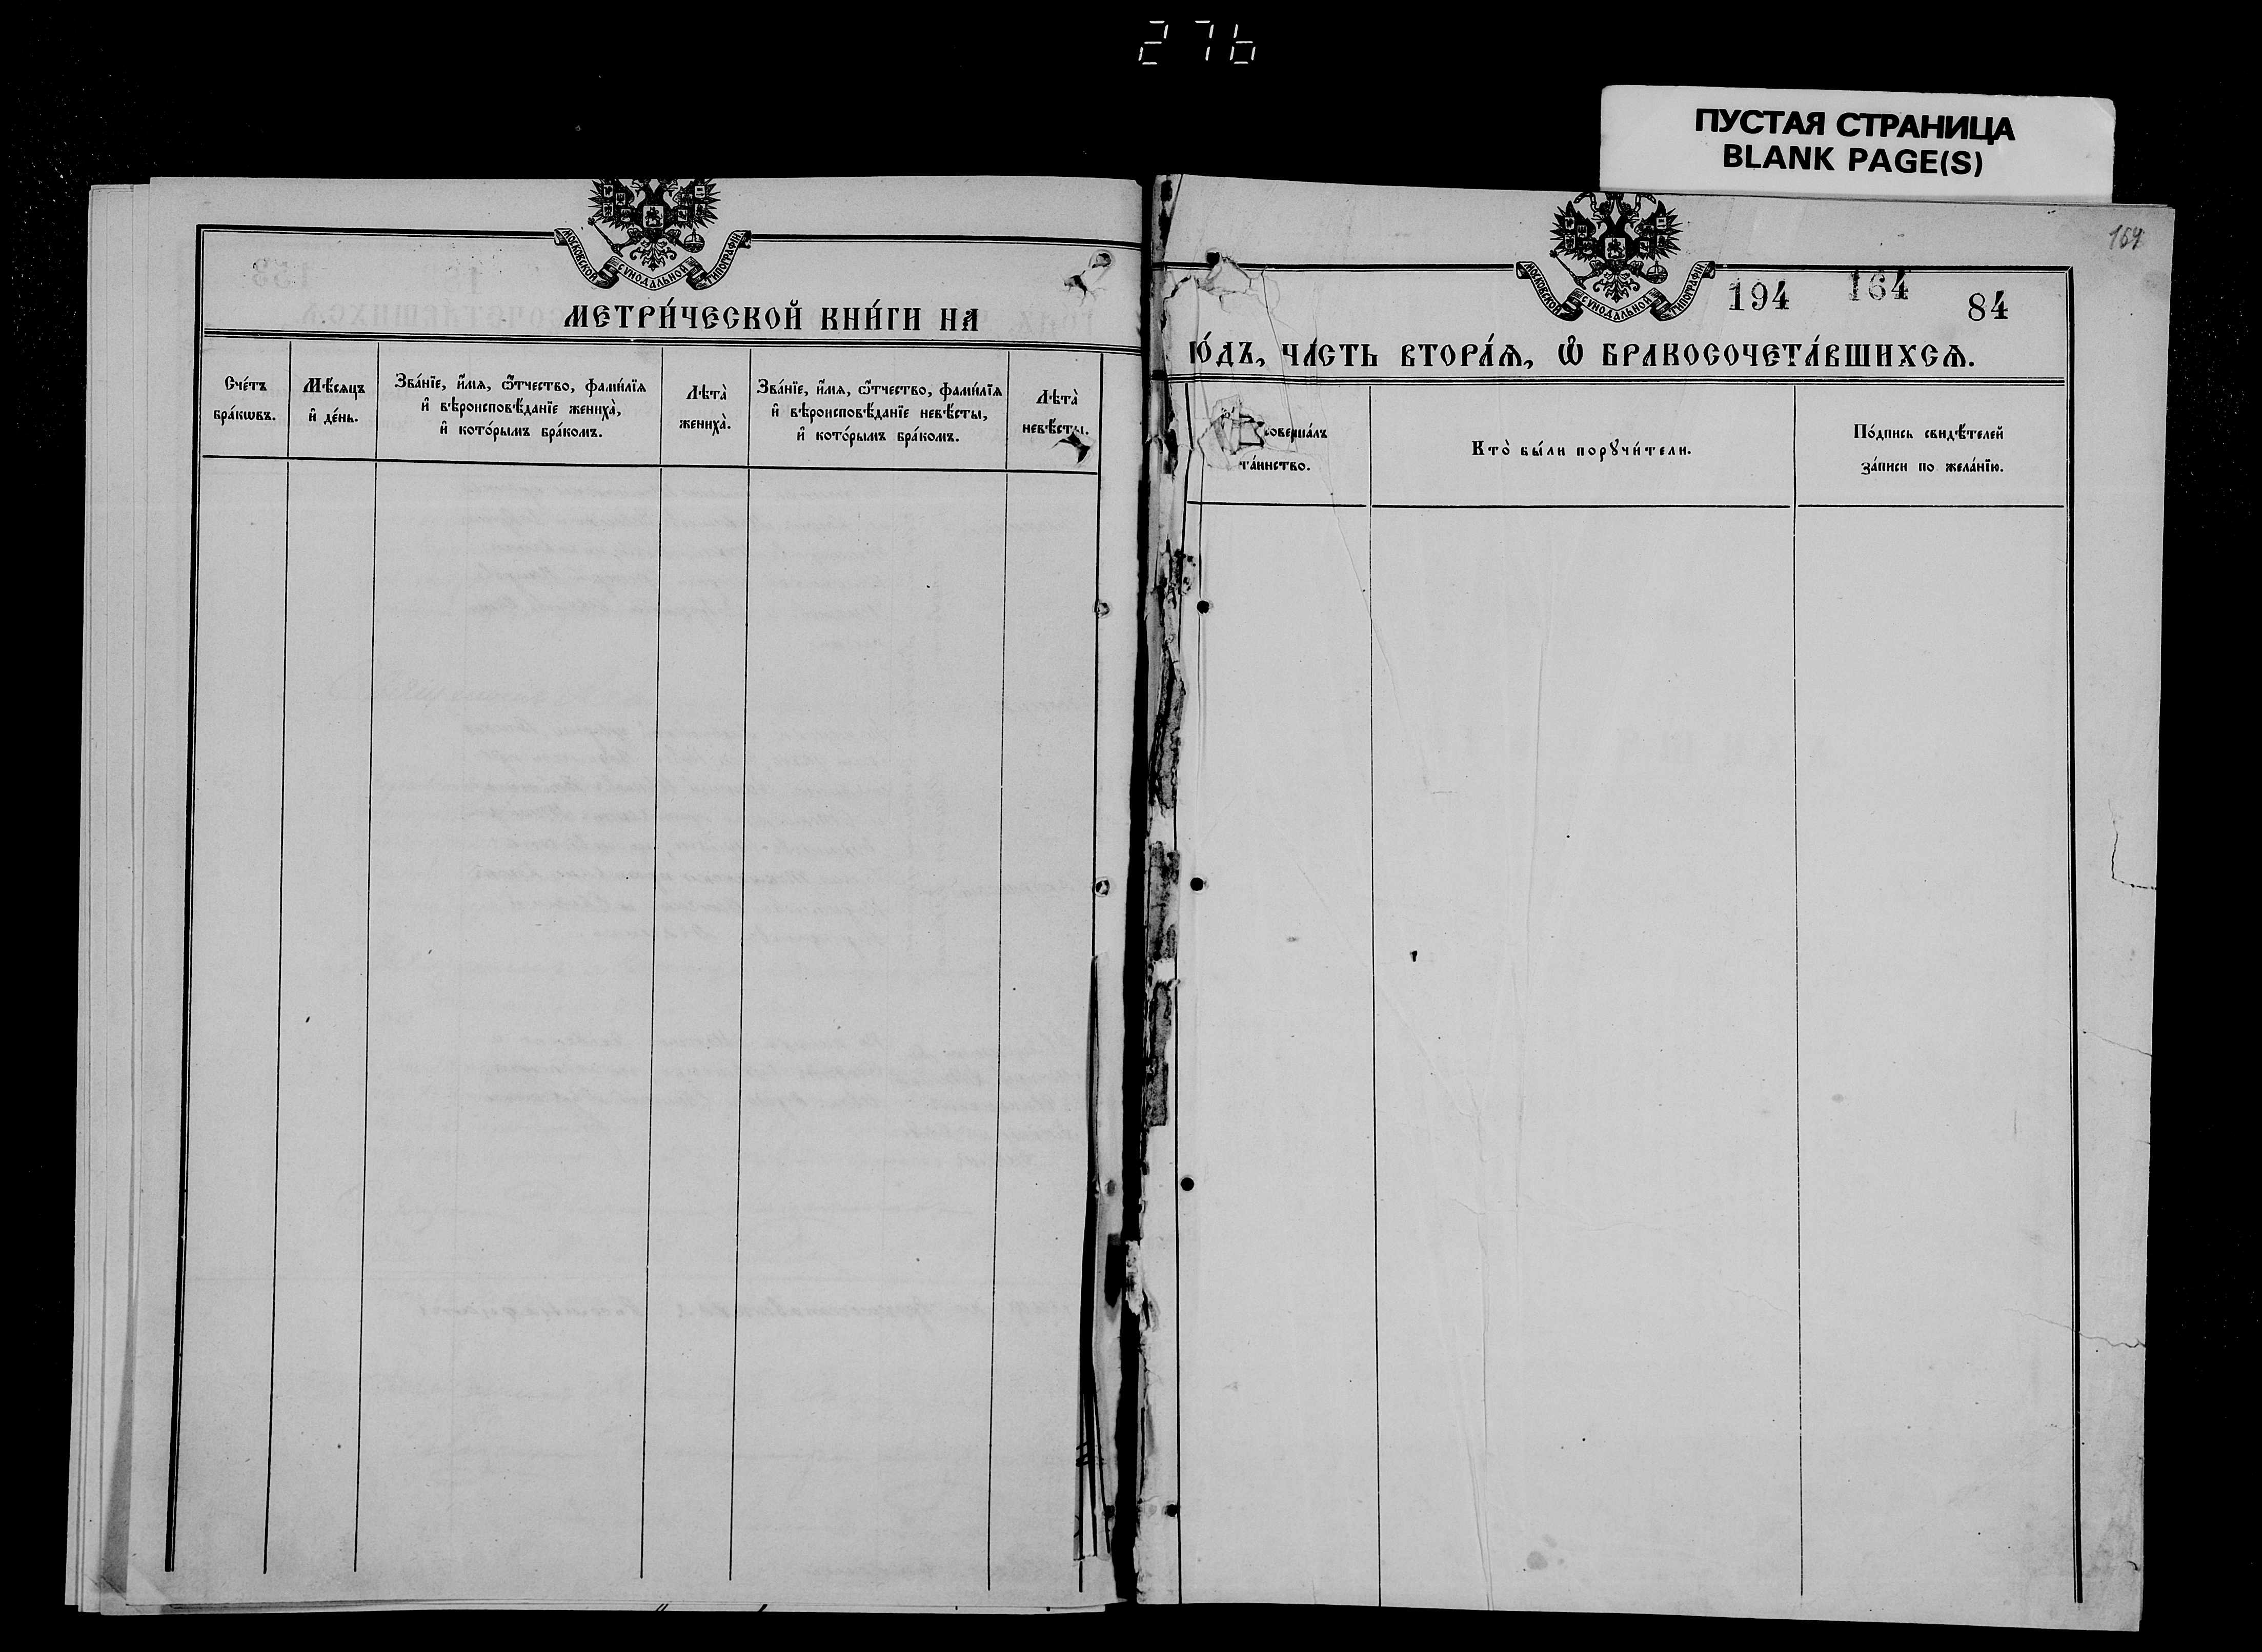 276
ПУСТАЯ СТРАНИЦА
BLANK PAGE(S)
164
МОСКОВСКОЙ СѴНОДАЛЬНОЙ ТИПОГРАФІИ
МЕТРИ́ЧЕСКОЙ КНИ́ГИ НА
Сче́тъ
бра́кѡвъ.
Мѣ́сяцъ
и҆ де́нь.
Зва́нїе, и҆́мя, ѻ҆́тчество, фами́лїя
и҆ вѣроисповѣ́данїе жениха̀,
и҆ кото́рымъ бра́комъ.
Лѣта̀
жениха̀.
Зва́нїе, и҆́мя, ѻ҆́тчество, фами́лїя
и҆ вѣроисповѣ́данїе невѣ́сты,
и҆ кото́рымъ бра́комъ.
Лѣта̀
невѣ́сты.
МОСКОВСКОЙ СѴНОДАЛЬНОЙ ТИПОГРАФІИ
194 164 84
ГО́ДЪ, ЧА́СТЬ ВТОРА́Ѧ, Ѽ БРАКОСОЧЕТА́ВШИХСѦ.
соверша́лъ
та́инство.
Кто̀ бы́ли порꙋчи́тели.
По́дпись свидѣ́телей
за́писи по жела́нїю.